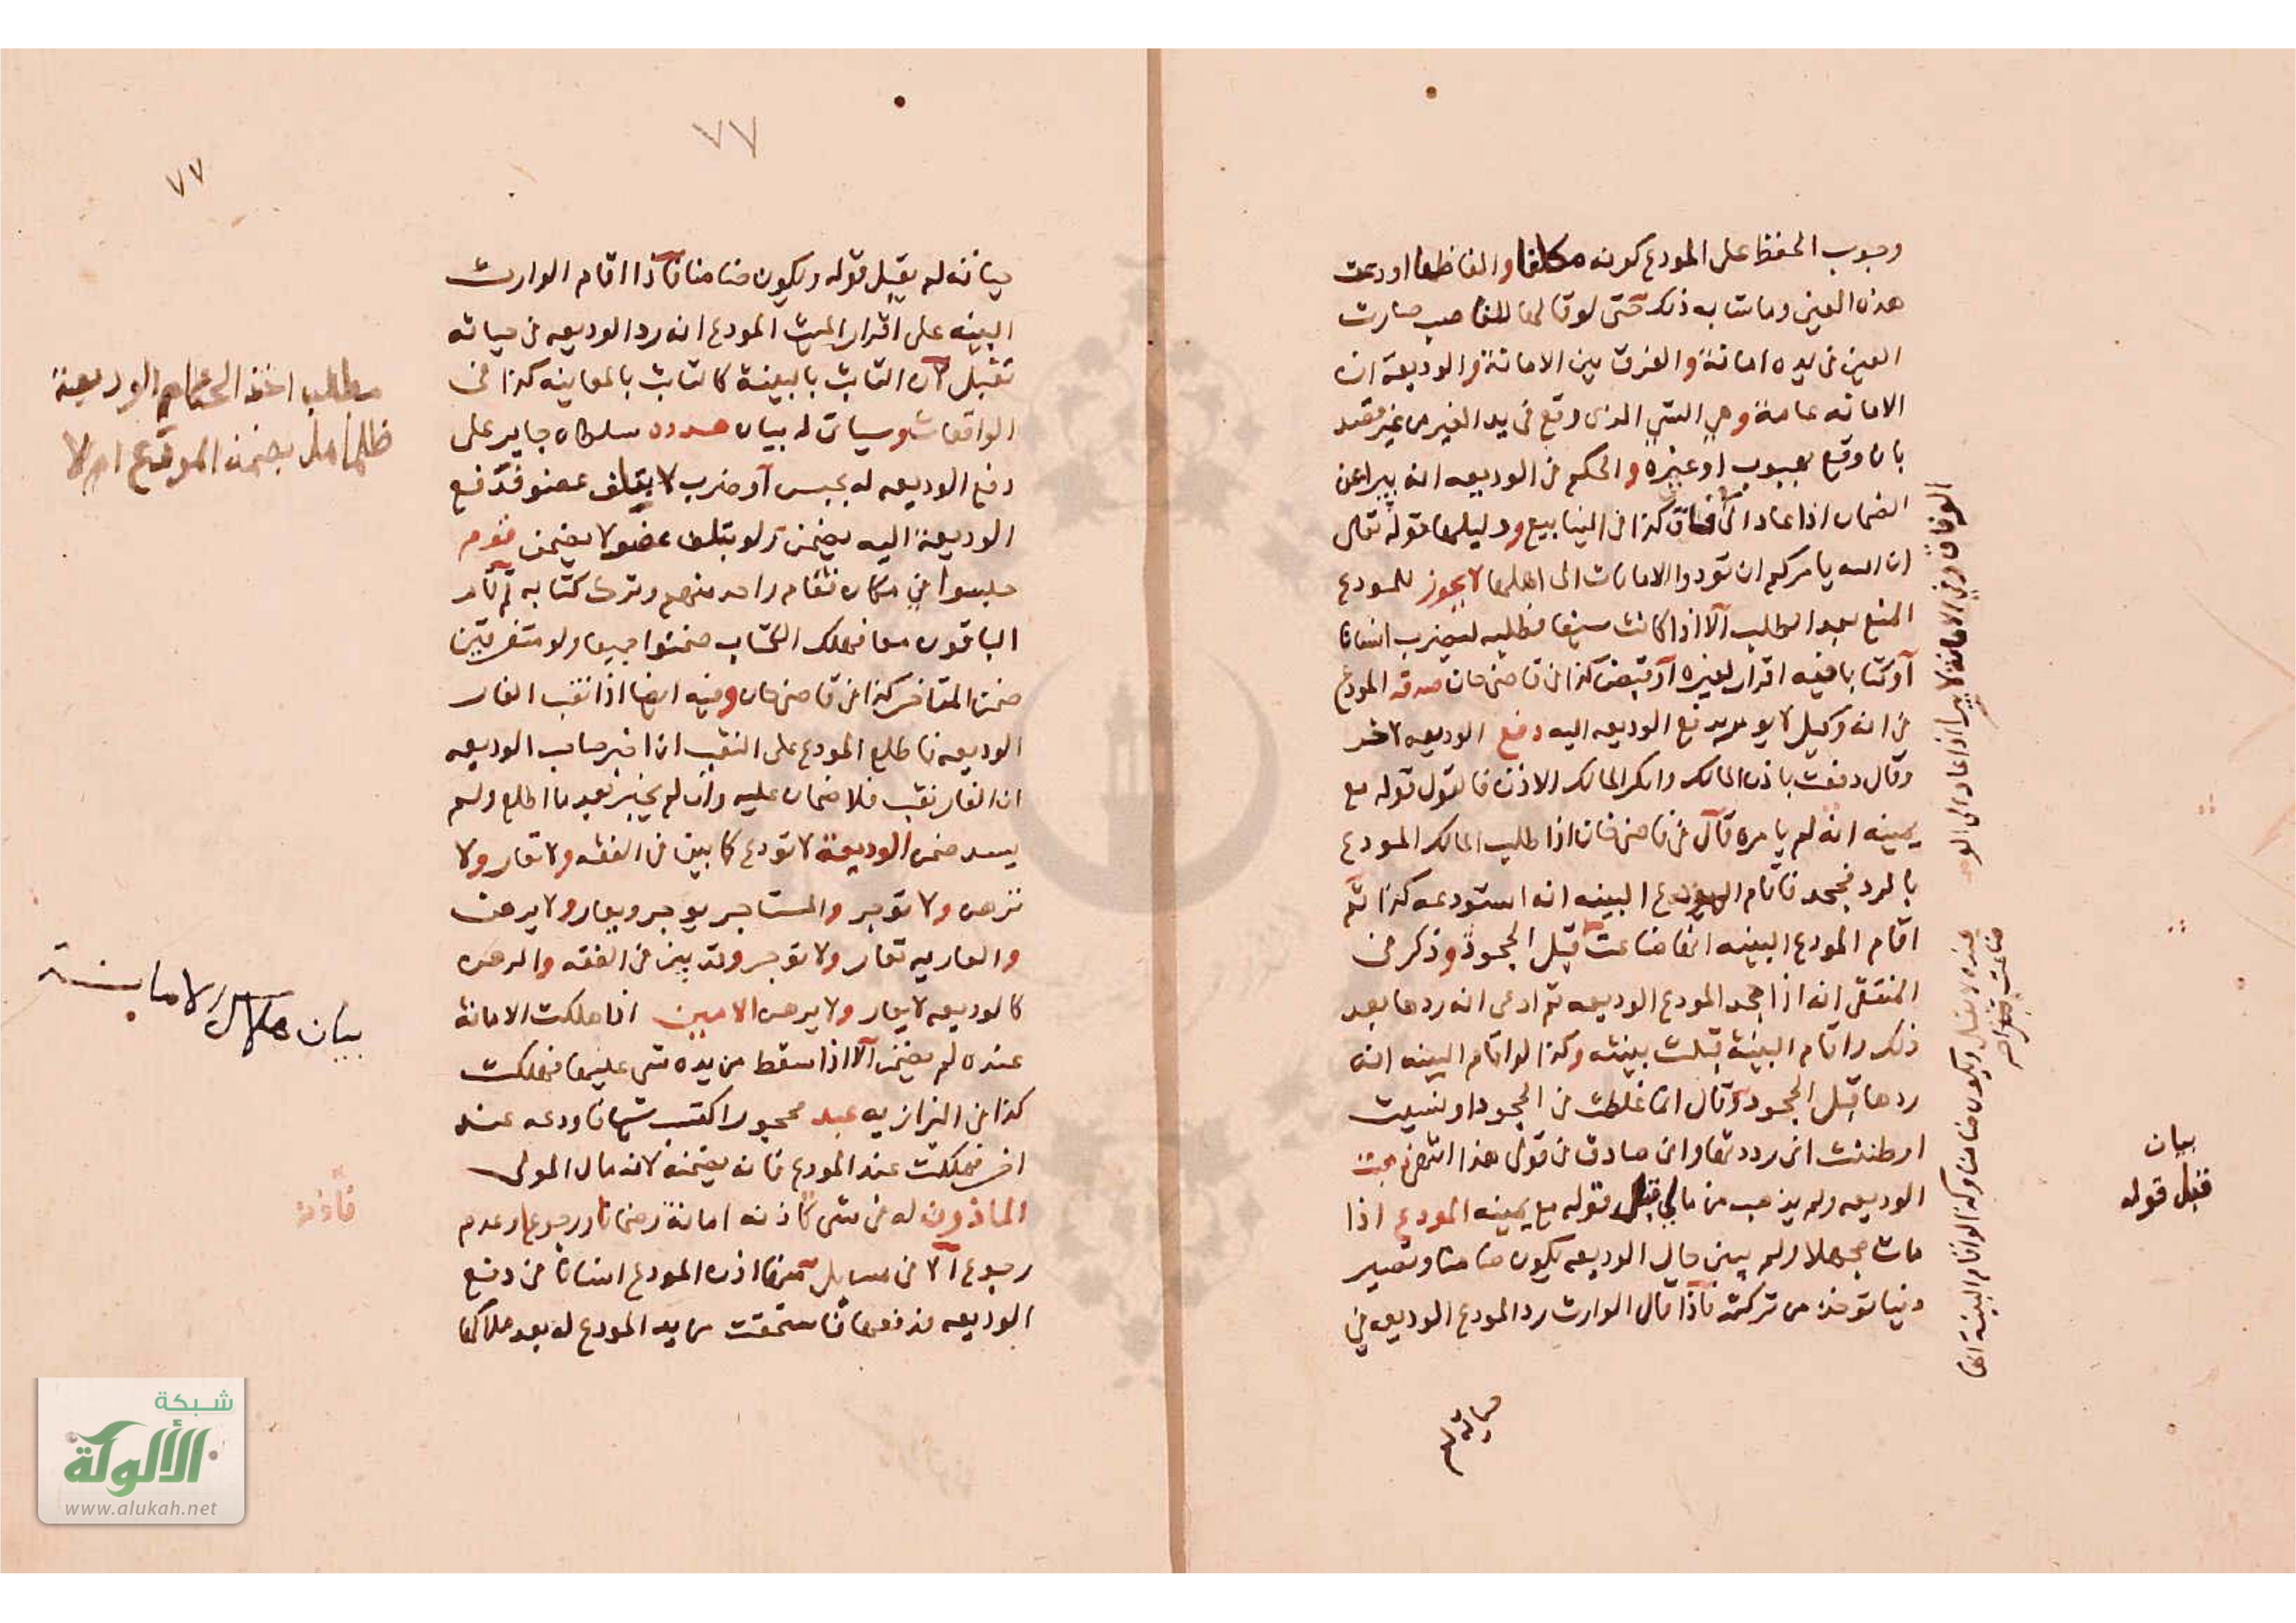 وجوب الحفظ على المودع كونه مكلفا والفاظها اودعت
هذه العين وما شابه ذلك حتى لو قالها للغاصب صارت
العين في يده امانة والفرق بين الامانة والوديعة ان
الامانه عامة وهي الشي الذى وقع في يد الغير من غير قصد
بان وقع بهبوب او غيره والحكم في الوديعه انه يبرا عن
الضمان اذا عاد الى الوفاق كذا في الينابيع ودليلها قوله تعالى
ان الله يامركم ان تودوا الامانات الى اهلها لا يجوز للمودع
المنع بعد الطلب الا اذا كانت سيفا فطلبه ليضرب انسانا
او كتابا فيه اقرار لغيره او قبض كذا في قاضي خان صدقه المودع
في انه وكيل لا يومر بدفع الوديعه اليه دفع الوديعه لاخر
وقال دفعت باذن المالك وانكر المالك الاذن فالقول قوله مع
يمينه انه لم يامره قال في قاضي خان اذا طلب المالك المودع
بالرد فجحد فاقام المودع البينه انه استودعه كذا ثم
اقام المودع البينه انها ضاعت قبل الجحود وذكر في
المنتقى انه اذا جحد المودع الوديعه ثم ادعى انه ردها بعد
ذلك واقام البينة قبلت بينته وكذا لو اقام البينه انه
ردها قبل الجحود وقال انما غلطت في الجحود او نسيت
او ظننت انى رددتها وانى صادق في قولي هذا
الوديعه ولم يذهب من مالي قبل قوله مع يمينه المودع اذا
مات مجهلا ولم يبين حال الوديعه يكون ضامنا وتصير
دينا توخذ من تركته فاذا قال الوارث رد المودع الوديعه في
حياته لم
الوفاق وفي الامانة لا يبرا اذا عاد الى الو
عنده لا يقبل ويكون ضامنا وكذا لو اقام البينة انها
ضاعت
بيان
قبل قوله
٧٧
٧٧
حياته لم يقبل قوله ويكون ضامنا فاذا اقام الوارث
البينه على اقرار الميت المودع انه رد الوديعه في حياته
تقبل لان الثابت بالبينة كالثابت بالمعاينه كذا في
الواقعات وسياتى له بيان هدده سلطان جاير على
دفع الوديعه له بحبس او ضرب لا يتلف عضو فدفع
الوديعة اليه يضمن ولو بتلف عضو لا يضمن قوم
جلسوا في مكان فقام واحد منهم وترك كتابه ثم قام
الباقون معا فهلك الكتاب ضمنوا جميعا ولو متفرقين
ضمن المتاخر كذا في قاضي خان وفيه ايضا اذا نقب الفار
الوديعه فاطلع المودع على النقب ان اخبر صاحب الوديعه
ان الفار نقب فلا ضمان عليه وان لم يخبر بعد ما اطلع ولم
يسد ضمن الوديعة لا تودع كما بين في الفقه ولا تعار ولا
ترهن ولا توجر والمستاجر يوجر ويعار ولا يرهن
والعاريه تعار ولا توجر وقد بين في الفقه والرهن
كالوديعه لا يعار ولا يرهن الامين اذا هلكت الامانة
عنده لم يضمن الا اذا سقط من يده شى عليها فهلكت
كذا في البزازيه عبد محجور اكتسب شيا فاودعه عند
اخر فهلكت عند المودع فانه يضمنه لانه مال المولى
الماذون له في شى كاذنه امانة وضمانا ورجوعا وعدم
رجوع الا في مسايل منها اذن المودع انسانا في دفع
الوديعه فدفعها فاستحقت من يد المودع له بعد هلاكها
مطلب اخذ الحكام الوديعة
ظلما هل يضمن المودع ام لا
بيان هلاك الامانة
شبكة
الألوكة
www.alukah.net